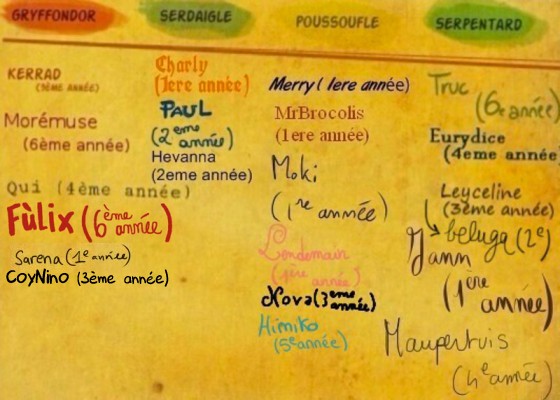 GRYFFONDOR
KERRAD
(3ÈME ANNÉE)
Morémuse
(6ème année)
Qui (4ème année)
Fùlix (6ème année)
Sarena (1e année)
CoyNino (3ème année)
SERDAIGLE
Charly
(1ere année)
PAUL
(2eme année)
Hevanna
(2eme année)
POUSSOUFLE
Merry (1ere année)
MrBrocolis
(1ere année)
Moki
(1re année)
Lendemain
(1ère année)
Nova (3eme année)
Himiko
(5e année)
SERPENTARD
Truc
(6e année)
Eurydice
(4eme année
Leyceline
(3ème année)
beluga (2e)
Yann
(1ère année)
Maupertuis
(4e année)